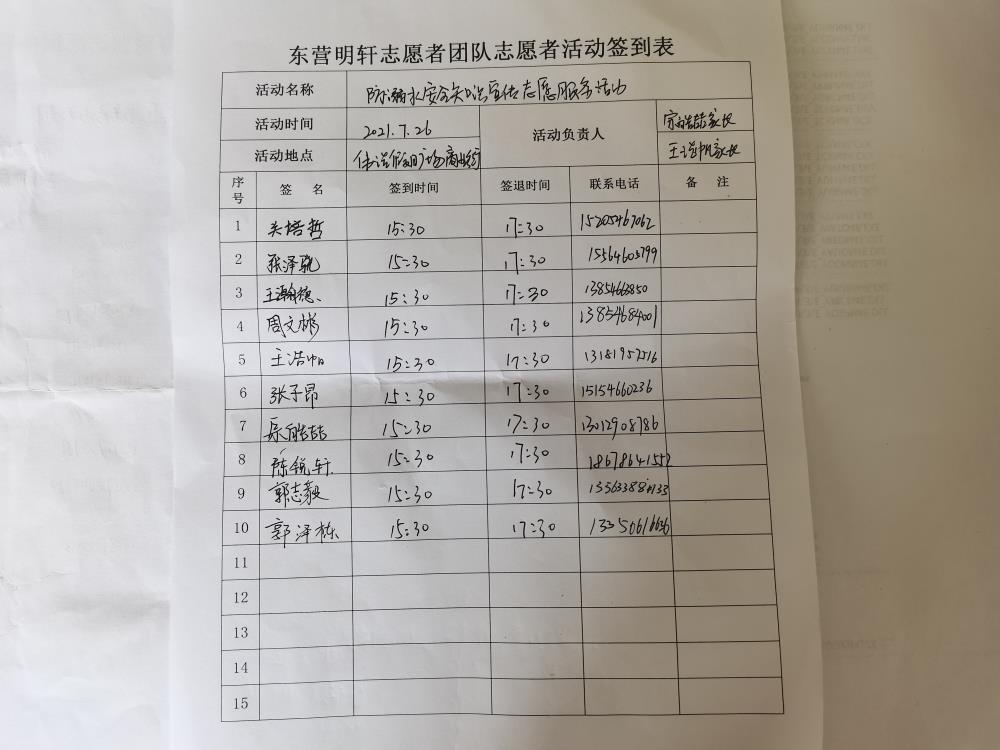 东营明轩志愿者团队志愿者活动签到表
活动名称 防溺水安全知识宣传志愿服务活动
活动时间 2021.7.26 活动负责人 家长
活动地点 广场商业街 王浩帆家长
序号 签 名 签到时间 签退时间 联系电话 备 注
1 关培哲 15:30 17:30 15205467062
2 张泽凯 15:30 17:30 15564605799
3 王瀚德 15:30 17:30 1385466850
4 周文彬 15:30 17:30 13854684001
5 王浩帆 15:30 17:30 13181957216
6 张子昂 15:30 17:30 15154660236
7 15:30 17:30 13012908786
8 陈锐轩 15:30 17:30 18678641552
9 郭志毅 15:30 17:30
10 郭泽栋 15:30 17:30
11
12
13
14
15